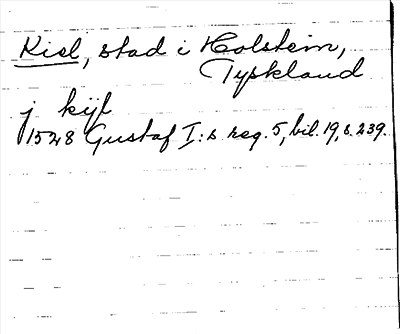 Kiel, stad i Holstein,
Tyskland
j kijl
1528 Gustaf I:s reg. 5, bil. 19, s. 239.